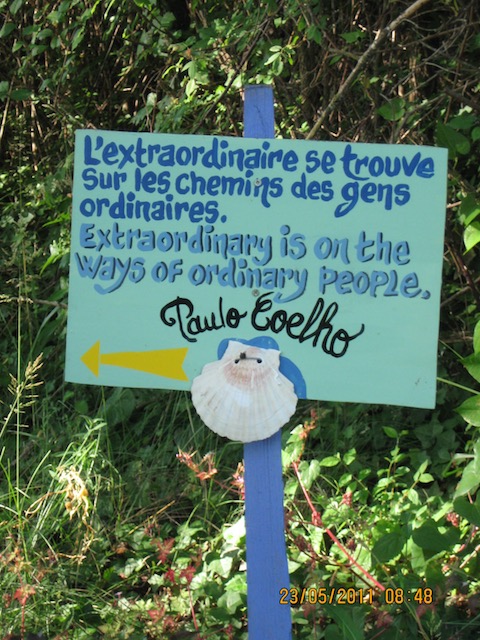 L'extraordinaire se trouve
Sur les chemins des gens
ordinaires.
Extraordinary is on the
ways of ordinary people.
Paulo Coelho
23/05/2011 08:48